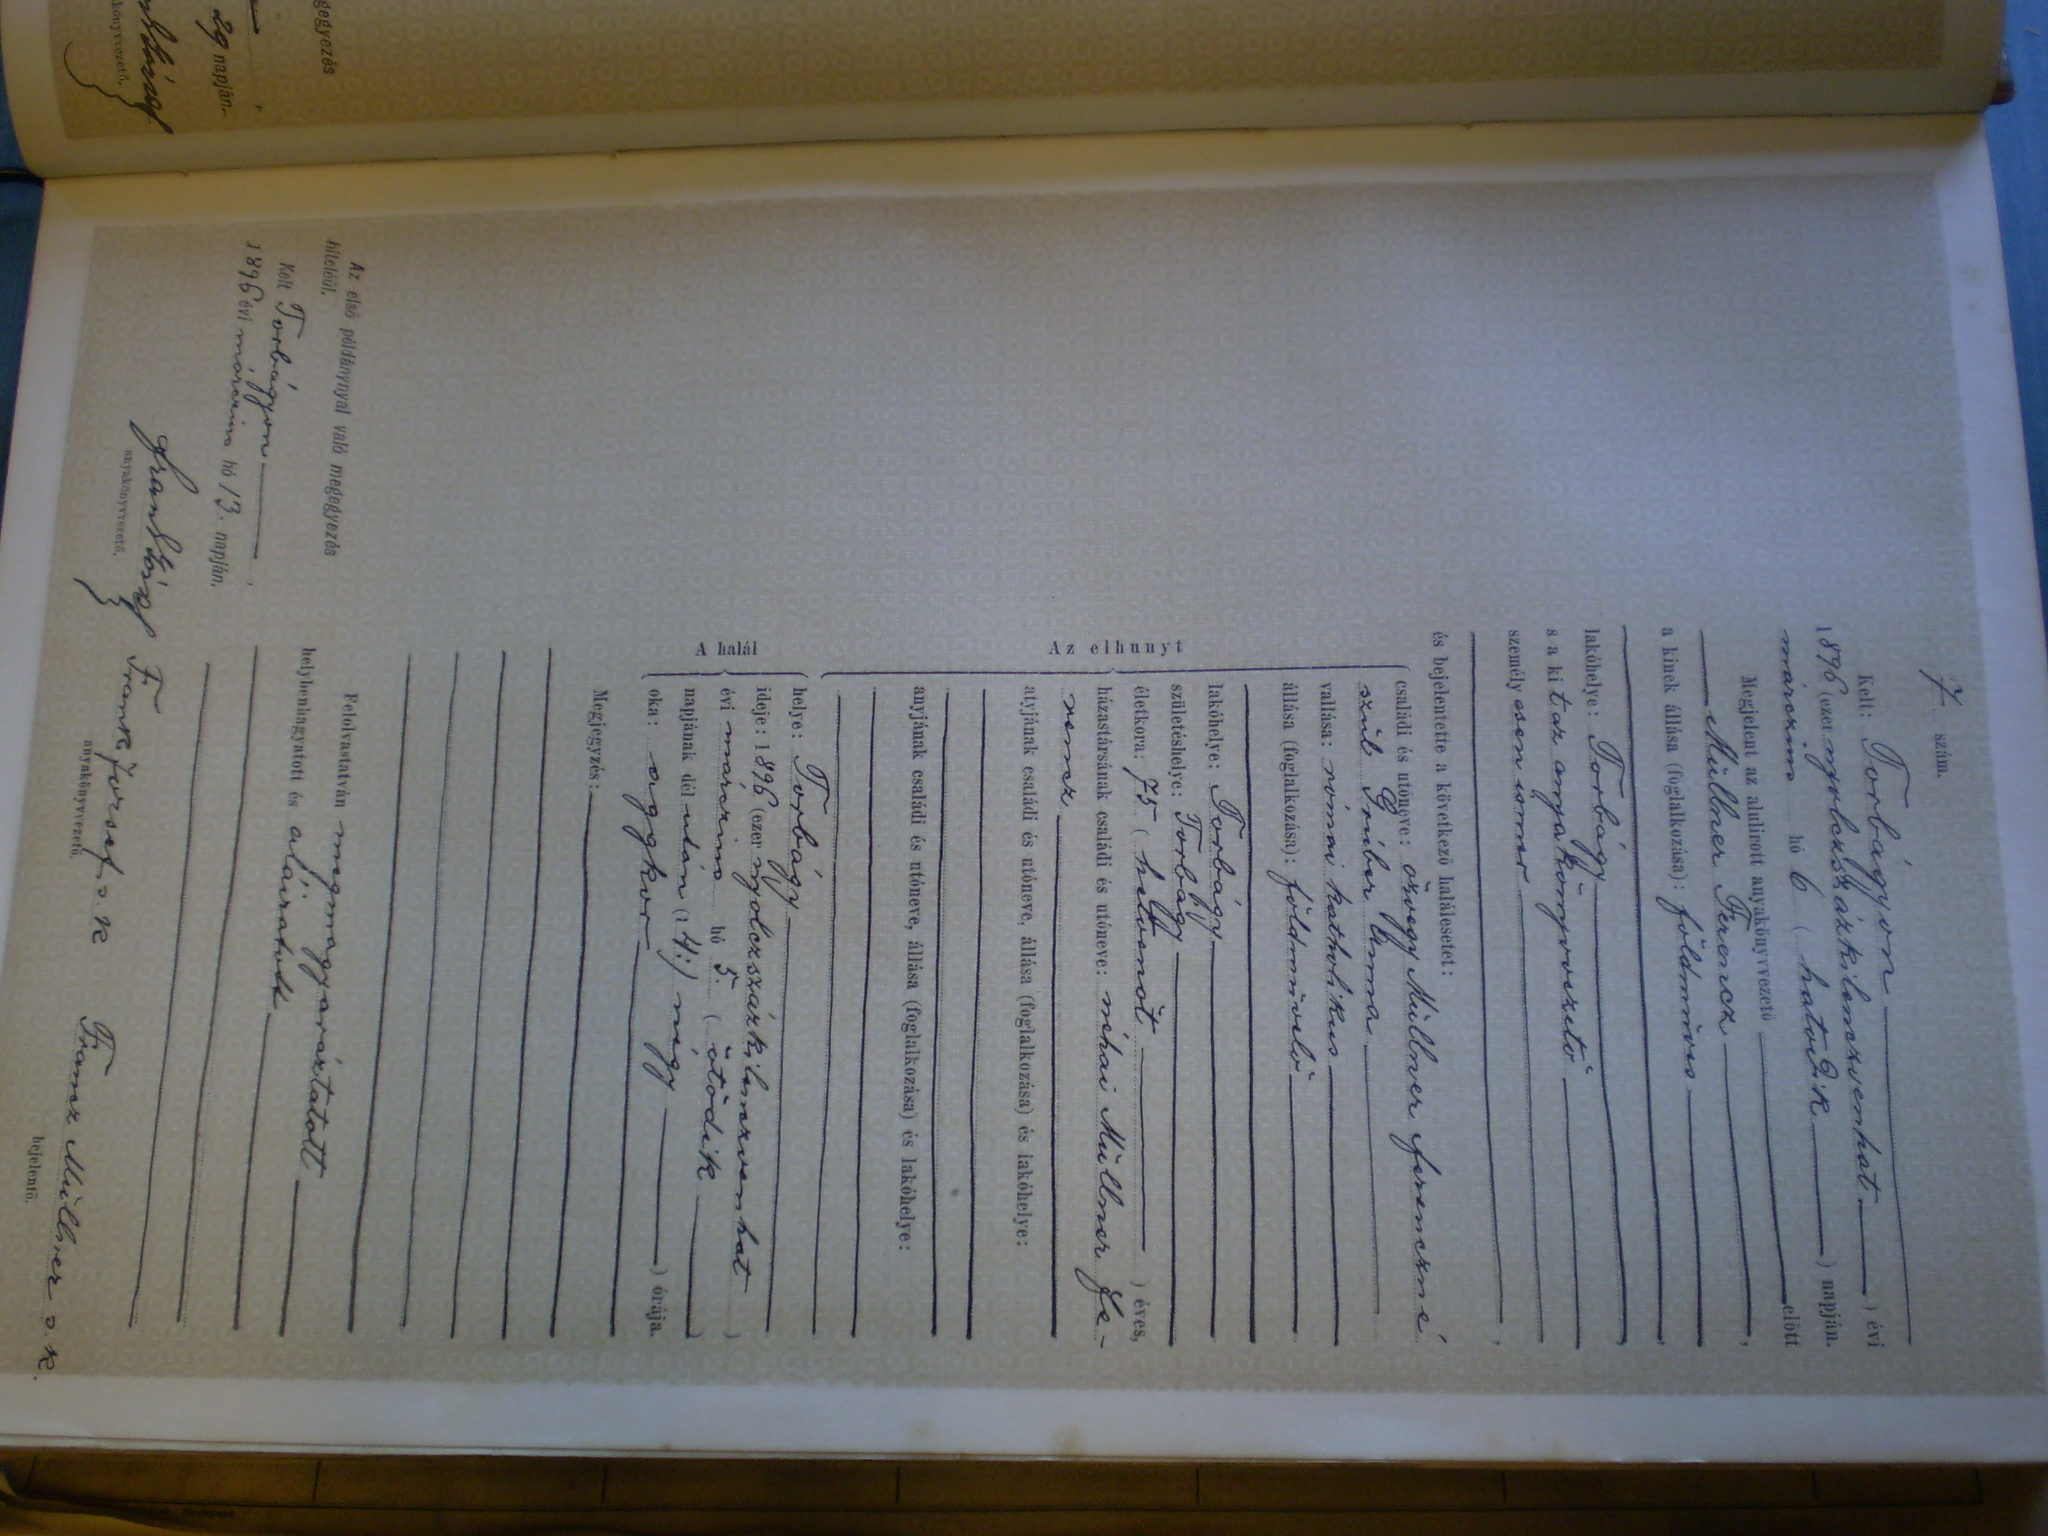 7. szám.
Kelt: Torbágyon
1896 (ezer nyolczszázkilenczvenhat) évi
márczius hó 6 (hatodik) napján.
Megjelent az alulirott anyakönyvvezető előtt
Müllner Ferencz,
a kinek állása (foglalkozása): földmíves
,
lakóhelye: Torbágy,
s a kit az anyakönyvvezető
személyesen ismer
,
és bejelentette a következő halálesetet:
Az elhunyt
családi és utóneve: özvegy Müllner Ferenczné
szül. Griber Anna
vallása: római katholikus
állása (foglalkozása): földmívelő
lakóhelye: Torbágy
születéshelye: Torbágy
életkora: 75 (hetvenöt) éves,
házastársának családi és utóneve: néhai Müllner Fe-
rencz
atyjának családi és utóneve, állása (foglalkozása) és lakóhelye:
anyjának családi és utóneve, állása (foglalkozása) és lakóhelye:
A halál
helye: Torbágy
ideje: 1896 (ezer nyolczszázkilenczvenhat)
évi márczius hó 5. (ötödik)
napjának dél után (4:) négy) órája.
oka: aggkor
Megjegyzés:
Felolvastatván megmagyaráztatott
helybenhagyatott és aláiratott
Frank József s. k.
anyakönyvvezető.
Franz Müllner s. k.
bejelentő.
Az első példánynyal való megegyezés
hiteléül.
Kelt Torbágyon,
1896 évi márczius hó 13. napján.
Frank József
anyakönyvvezető.
gegyezés
29 napján.
könyvvezető.